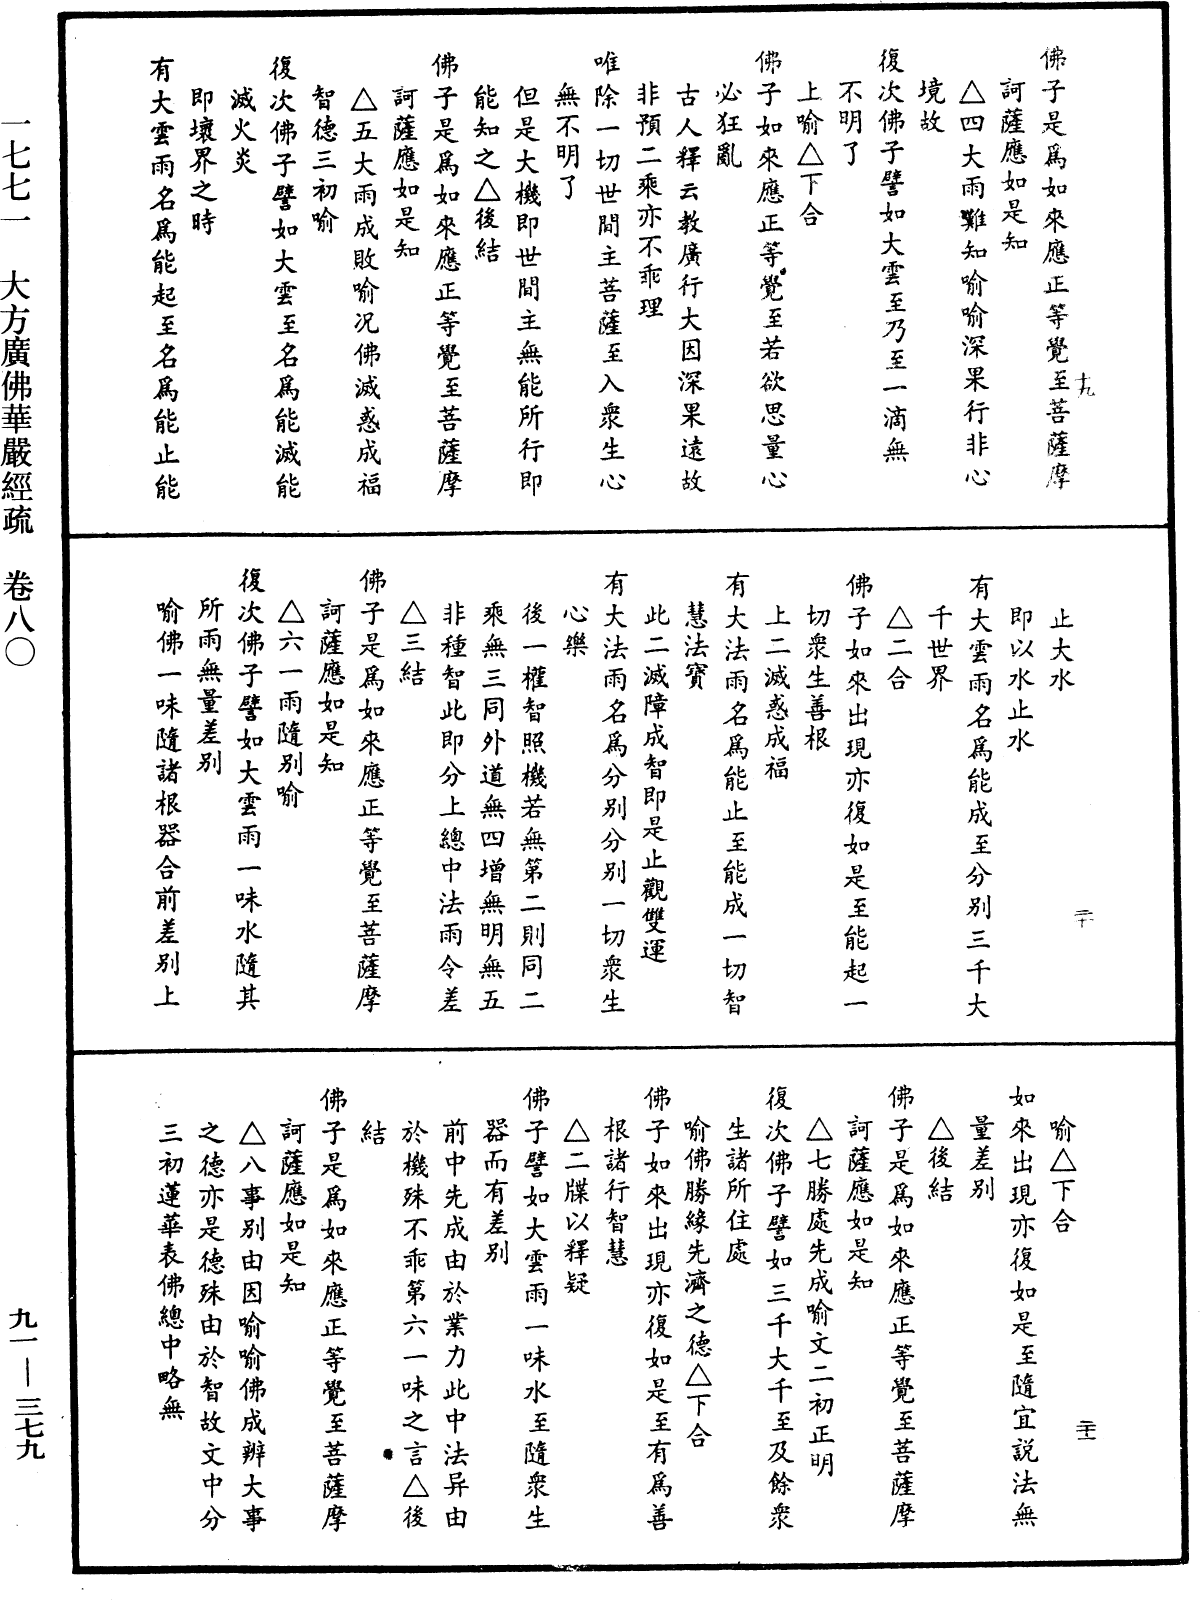 佛子是爲如來應正等覺至菩薩摩
訶薩應如是知
△四大雨難知喻喻深果行非心
境故
復次佛子譬如大雲至乃至一滴無
不明了
上喻△下合
佛子如來應正等覺至若欲思量心
必狂亂
古人釋云教廣行大因深果遠故
非預二乘亦不乖理
唯除一切世間主菩薩至入衆生心
無不明了
但是大機即世間主無能所行即
能知之△後結
佛子是爲如來應正等覺至菩薩摩
訶薩應如是知
△五大雨成敗喻况佛滅惑成福
智德三初喻
復次佛子譬如大雲至名爲能滅能
滅火炎
即壞界之時
有大雲雨名爲能起至名爲能止能
十九
止大水
即以水止水
有大雲雨名爲能成至分别三千大
千世界
△二合
佛子如來出現亦復如是至能起一
切衆生善根
上二滅惑成福
有大法雨名爲能止至能成一切智
慧法寶
此二滅障成智即是止觀雙運
有大法雨名爲分别分别一切衆生
心樂
後一權智照機若無第二則同二
乘無三同外道無四增無明無五
非種智此即分上總中法雨令差
△三結
佛子是爲如來應正等覺至菩薩摩
訶薩應如是知
△六一雨隨别喻
復次佛子譬如大雲雨一味水隨其
所雨無量差别
喻佛一味隨諸根器合前差别上
二十
喻△下合
如來出現亦復如是至隨宜説法無
量差别
△後結
佛子是爲如來應正等覺至菩薩摩
訶薩應如是知
△七勝處先成喻文二初正明
復次佛子譬如三千大千至及餘衆
生諸所住處
喻佛勝緣先濟之德△下合
佛子如來出現亦復如是至有爲善
根諸行智慧
△二牒以釋疑
佛子譬如大雲雨一味水至隨衆生
器而有差别
前中先成由於業力此中法异由
於機殊不乖第六一味之言△後
結
佛子是爲如來應正等覺至菩薩摩
訶薩應如是知
△八事别由因喻喻佛成辨大事
之德亦是德殊由於智故文中分
三初蓮華表佛總中略無
二十一
一七七一　大方廣佛華嚴經疏　卷八〇
九一—三七九